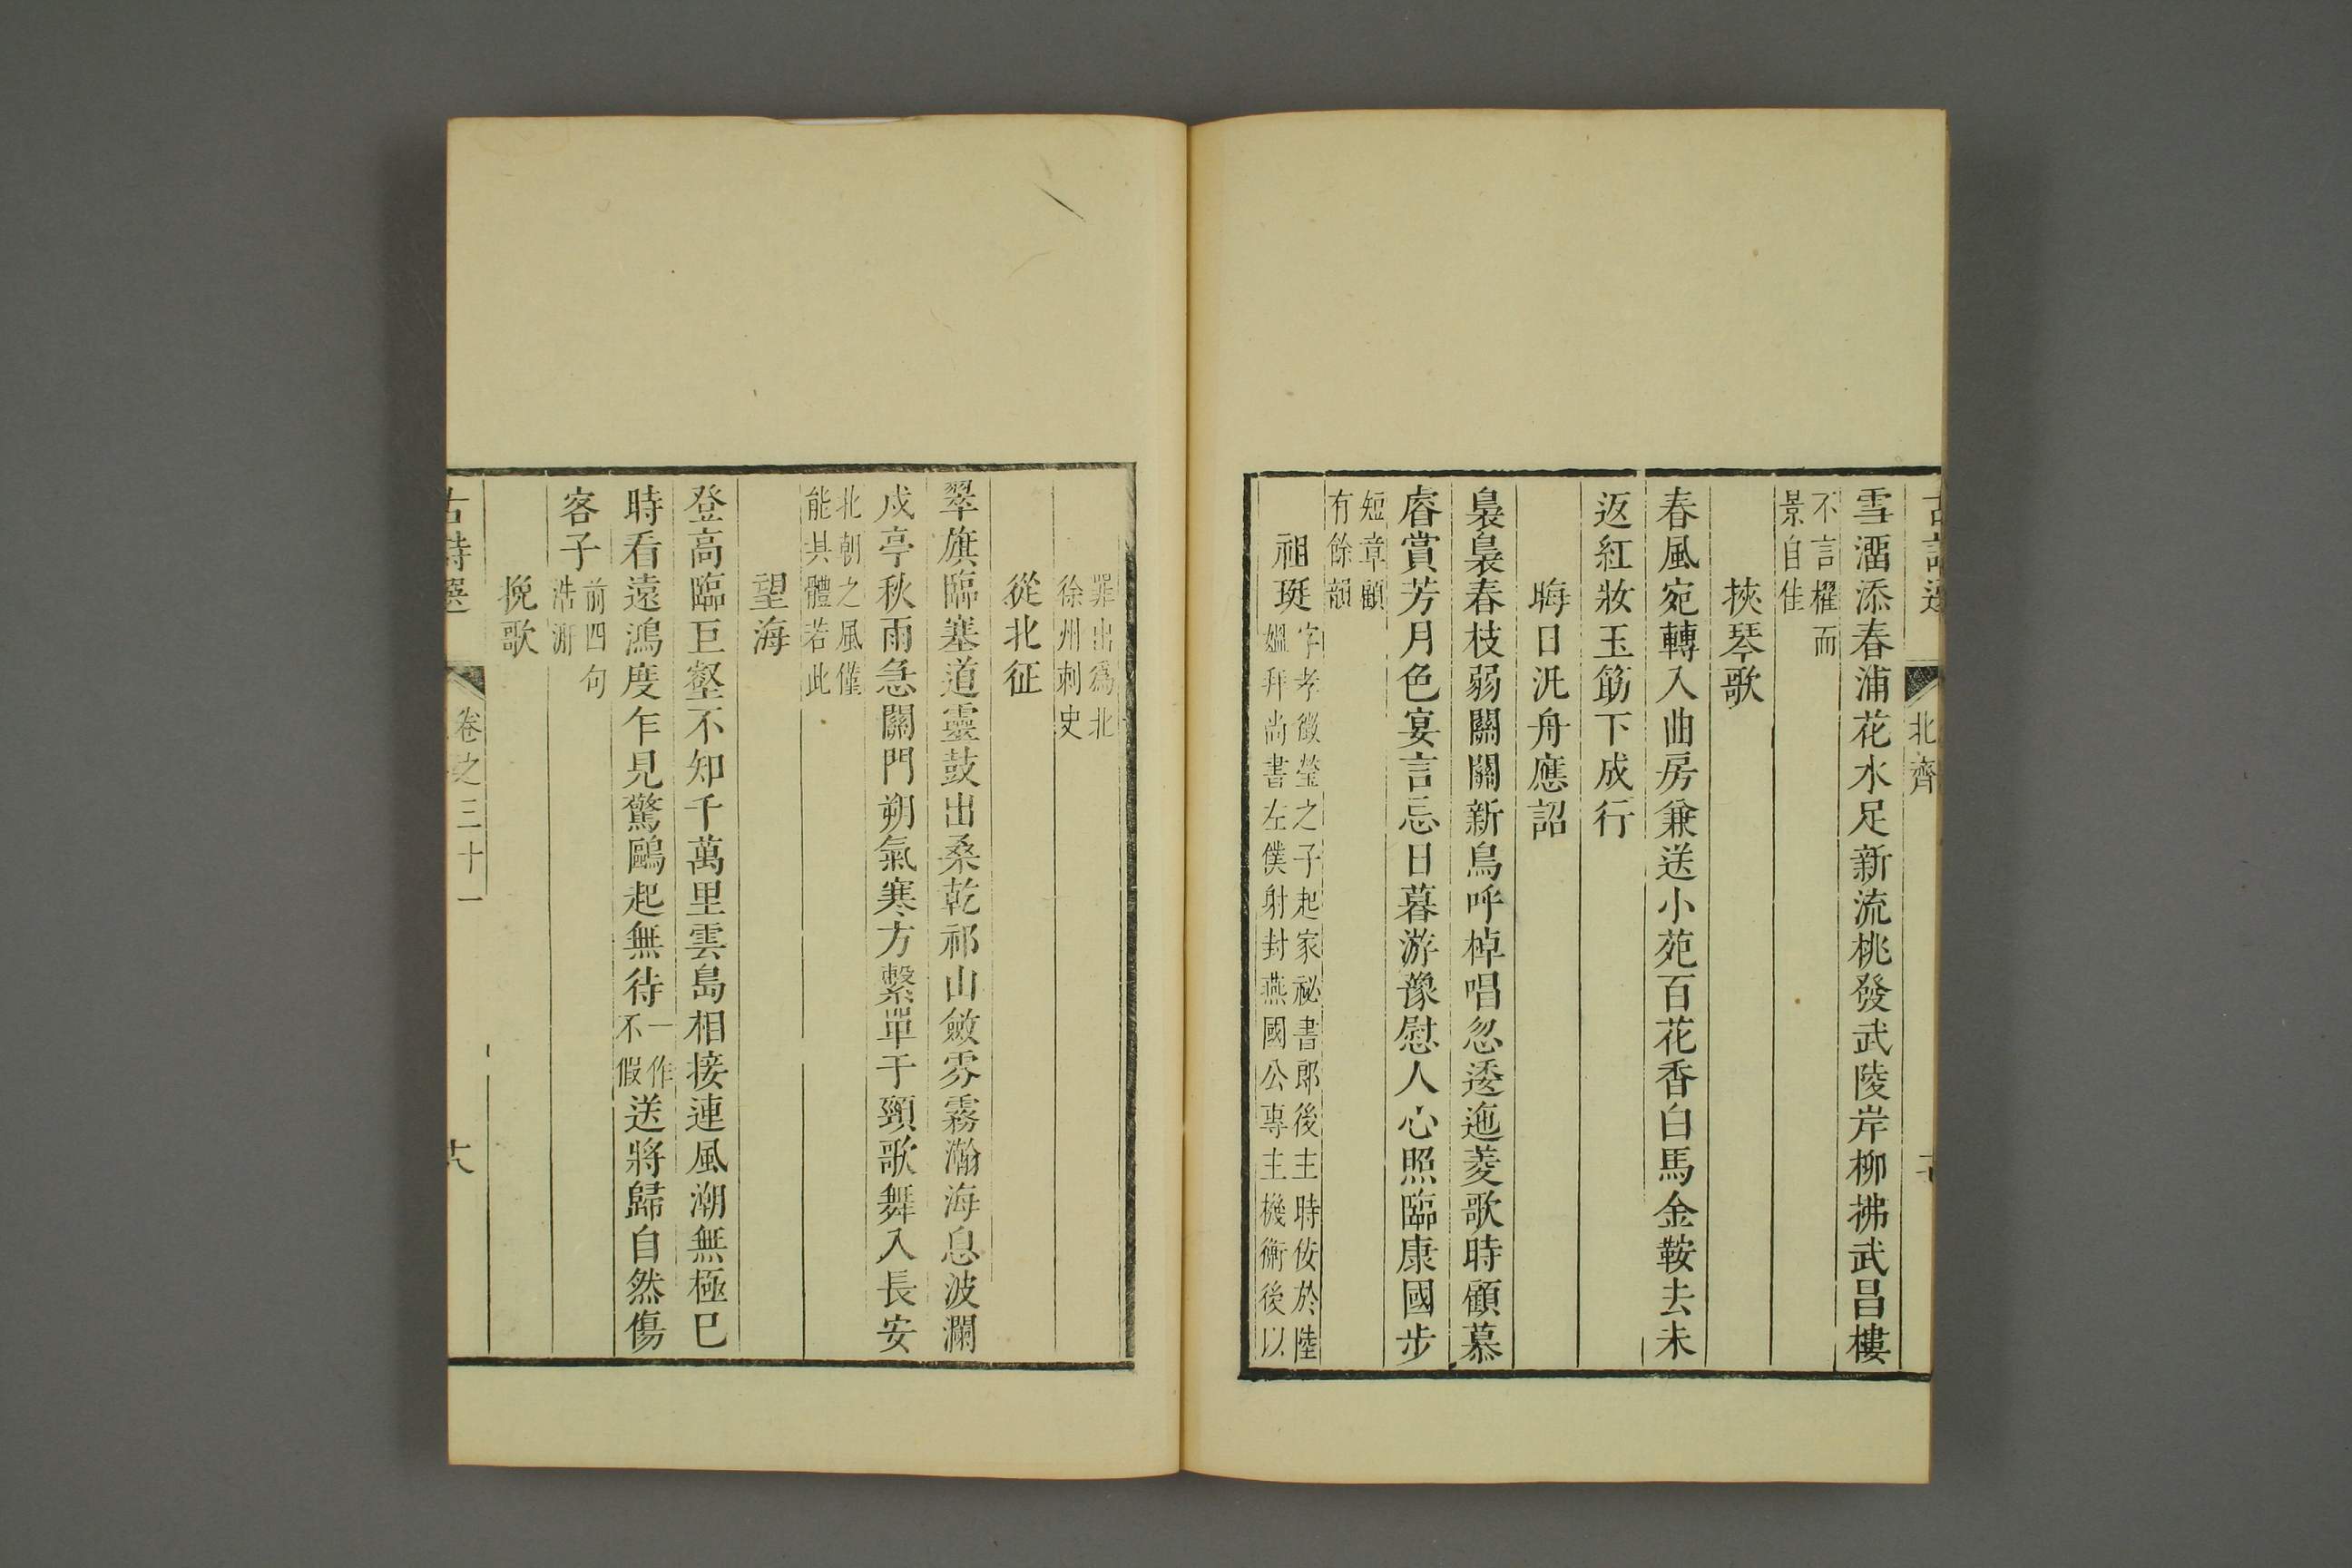 北齊
雪溜添春浦花水足新流桃發武陵岸柳拂武昌樓
不言櫂而
景自佳
挾琴歌
春風宛轉入曲房兼送小苑百花香白馬金鞍去未
返紅妝玉筯下成行
晦日汎舟應詔
裊裊春枝弱關關新鳥呼棹唱忽逶迤菱歌時顧慕
睿賞芳月色宴言忘日暮游豫慰人心照臨康國步
短章顧
有餘韻
祖珽
字孝徵瑩之子起家祕書郎後主時佞於陸
媼拜尚書左僕射封燕國公專主機衡後以
罪出爲北
徐州刺史
從北征
翠旗臨塞道靈鼓出桑乾祁山斂雰霧瀚海息波瀾
戍亭秋雨急關門朔氣寒方繫單于頸歌舞入長安
北朝之風僅
能具體若此
望海
登高臨巨壑不知千萬里雲島相接連風潮無極巳
時看遠鴻度乍見驚鷗起無待
一作
不假
送將歸自然傷
客子
前四句
浩渺
挽歌
古詩選
卷之三十一
十八